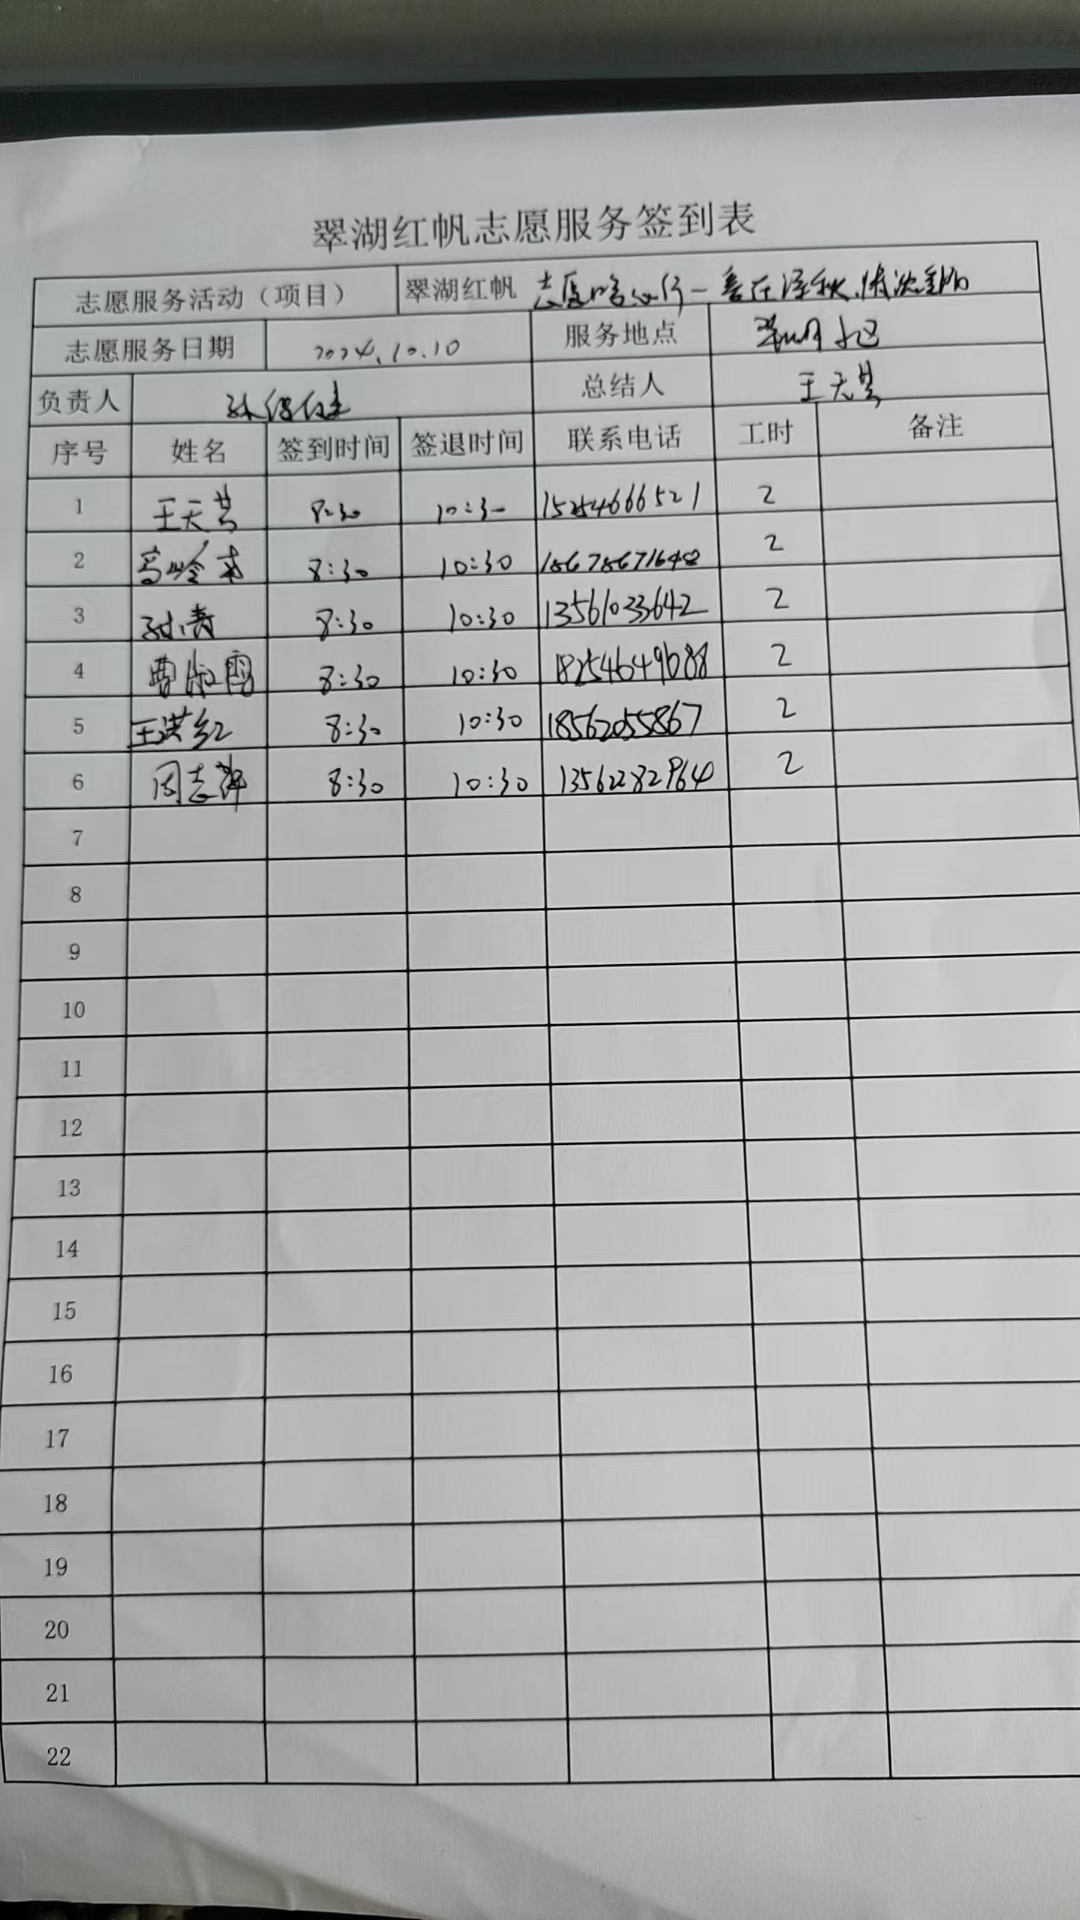 翠湖红帆志愿服务签到表
志愿服务活动（项目） 翠湖红帆 志愿
志愿服务日期 2024.10.10 服务地点 小区
负责人 总结人 王天芸
序号 姓名 签到时间 签退时间 联系电话 工时 备注
1 王天芸 8:30 10:30 15254666521 2
2 8:30 10:30 2
3 8:30 10:30 13561033642 2
4 8:30 10:30 18254649688 2
5 王洪红 8:30 10:30 18562055867 2
6 周志萍 8:30 10:30 13562282964 2
7
8
9
10
11
12
13
14
15
16
17
18
19
20
21
22